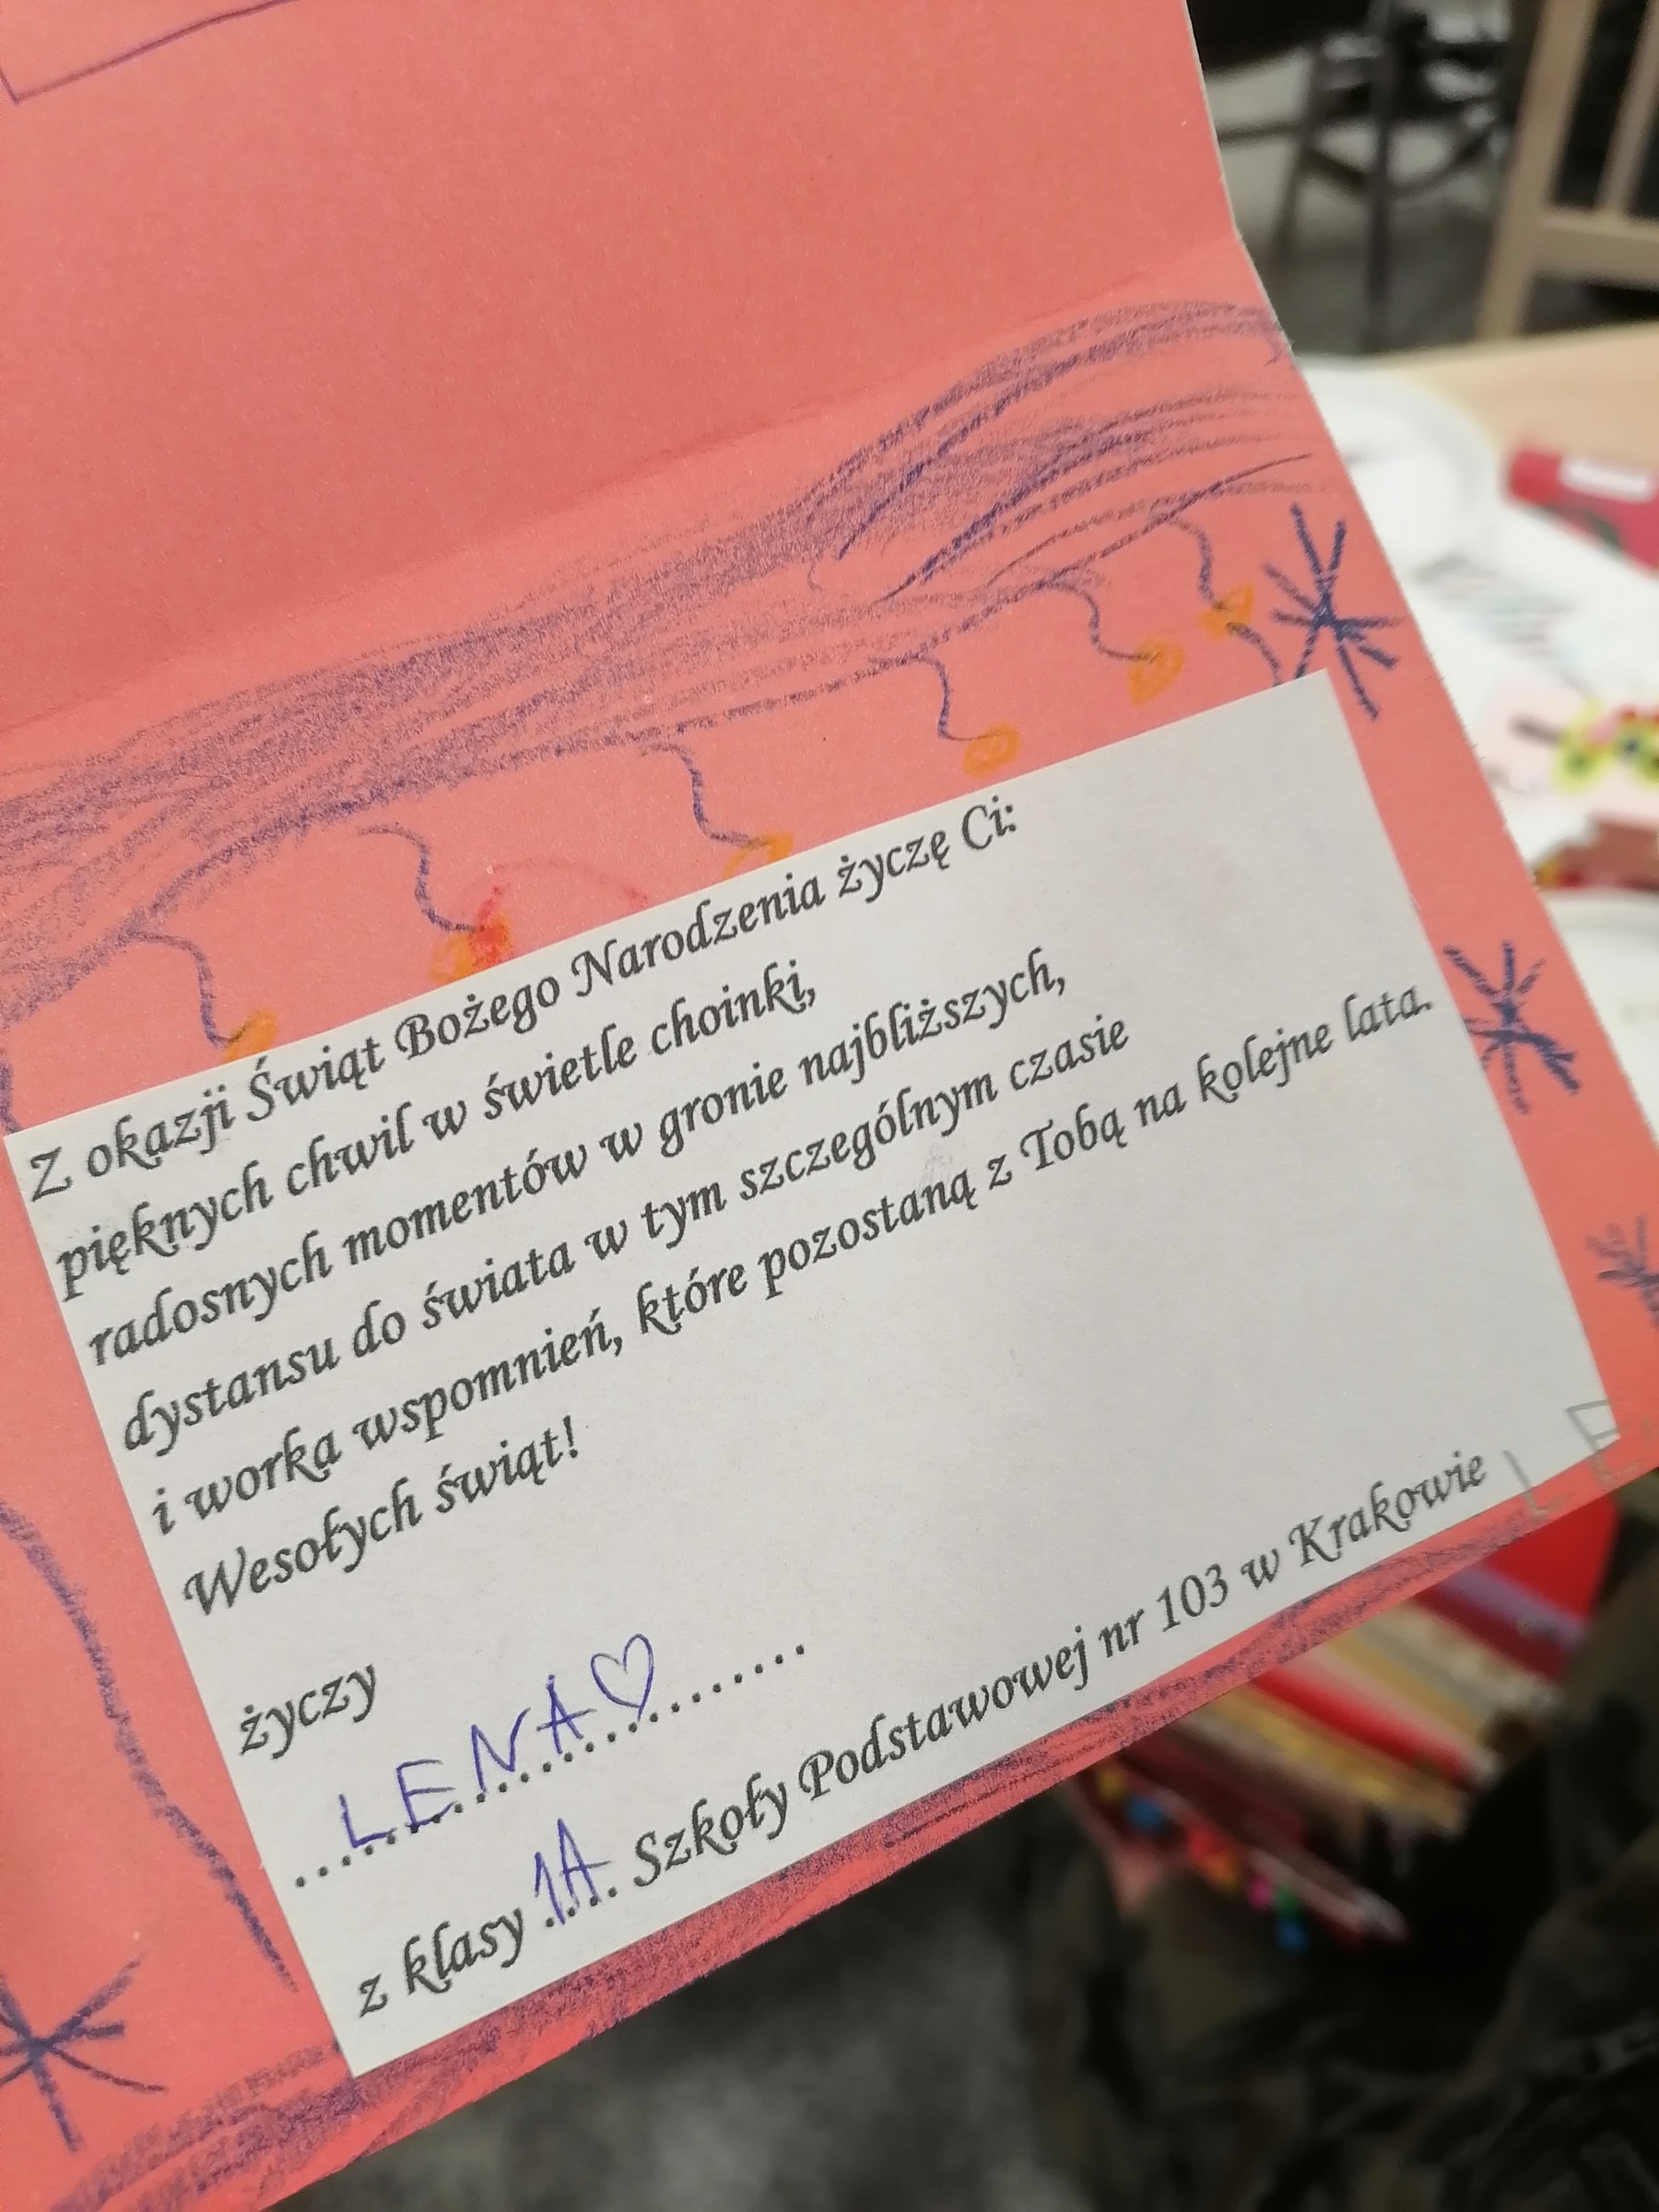 Z okazji Świąt Bożego Narodzenia życzę Ci:
pięknych chwil w świetle choinki,
radosnych momentów w gronie najbliższych,
dystansu do świata w tym szczególnym czasie
i worka wspomnień, które pozostaną z Tobą na kolejne lata.
Wesołych świąt!
życzy
LENA♡
z klasy 1A Szkoły Podstawowej nr 103 w Krakowie
LE